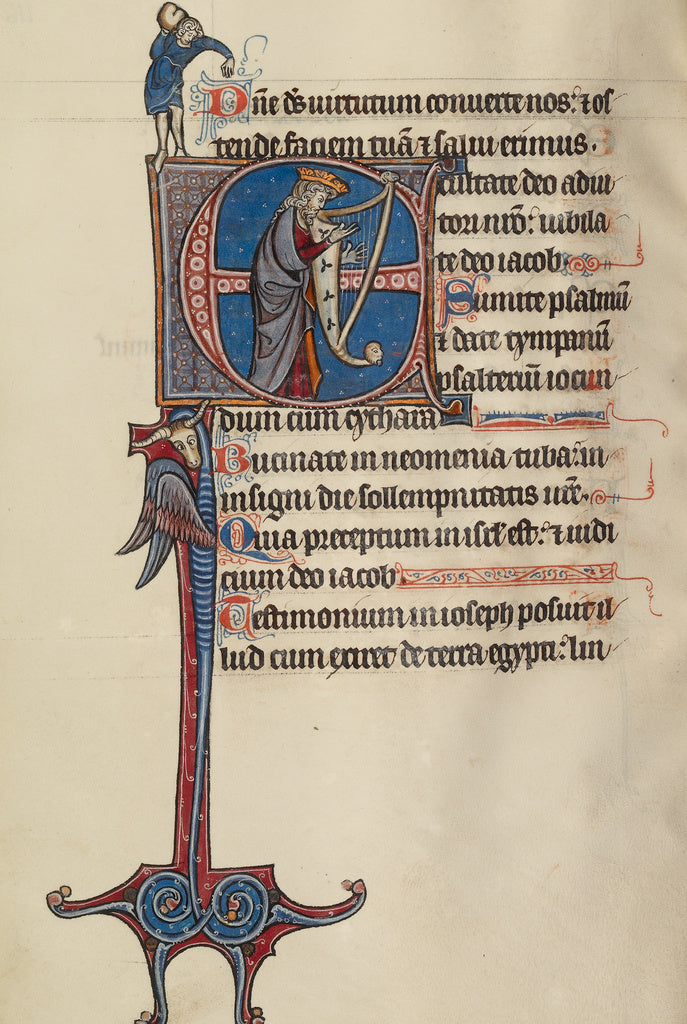 Dñe ds uirtutum conuerte nos: ⁊ os
tende faciem tuā ⁊ salui erimus.
Exultate deo adiu
tori nrō: iubila
te deo iacob
Sumite psalmū
⁊ date tympanū
psalteriū iocun
dum cum cythara
Bucinate in neomenia tuba: in
insigni die sollempnitatis ur̄e.
Quia preceptum in isrł est: ⁊ iudi
cium deo iacob
Testimonium in ioseph posuit il
lud cum exiret de terra egypti: lin